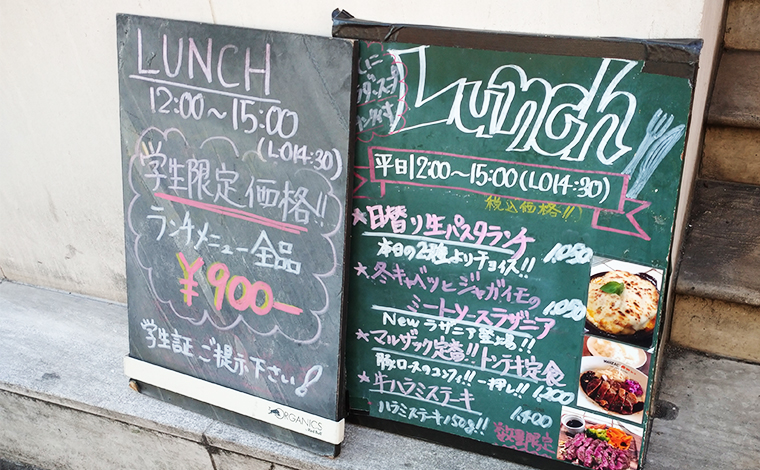 LUNCH
12:00〜15:00
(LO14:30)
学生限定価格!!
ランチメニュー全品
¥900-
学生証ご提示下さい!
ORGANICS
Lunch
平日12:00〜15:00(LO14:30)
税込価格!!
★日替り生パスタランチ 1.050
本日の2種よりチョイス!!
★冬キャベツとジャガイモの
ミートソースラザニア 1.050
Newラザニア登場!!
★マルザック定番!!トンテキ定食
豚ロースのコンフィ!!一押し!! 1.200
★牛ハラミステーキ
ハラミステーキ150g!! 1.400
数量限定